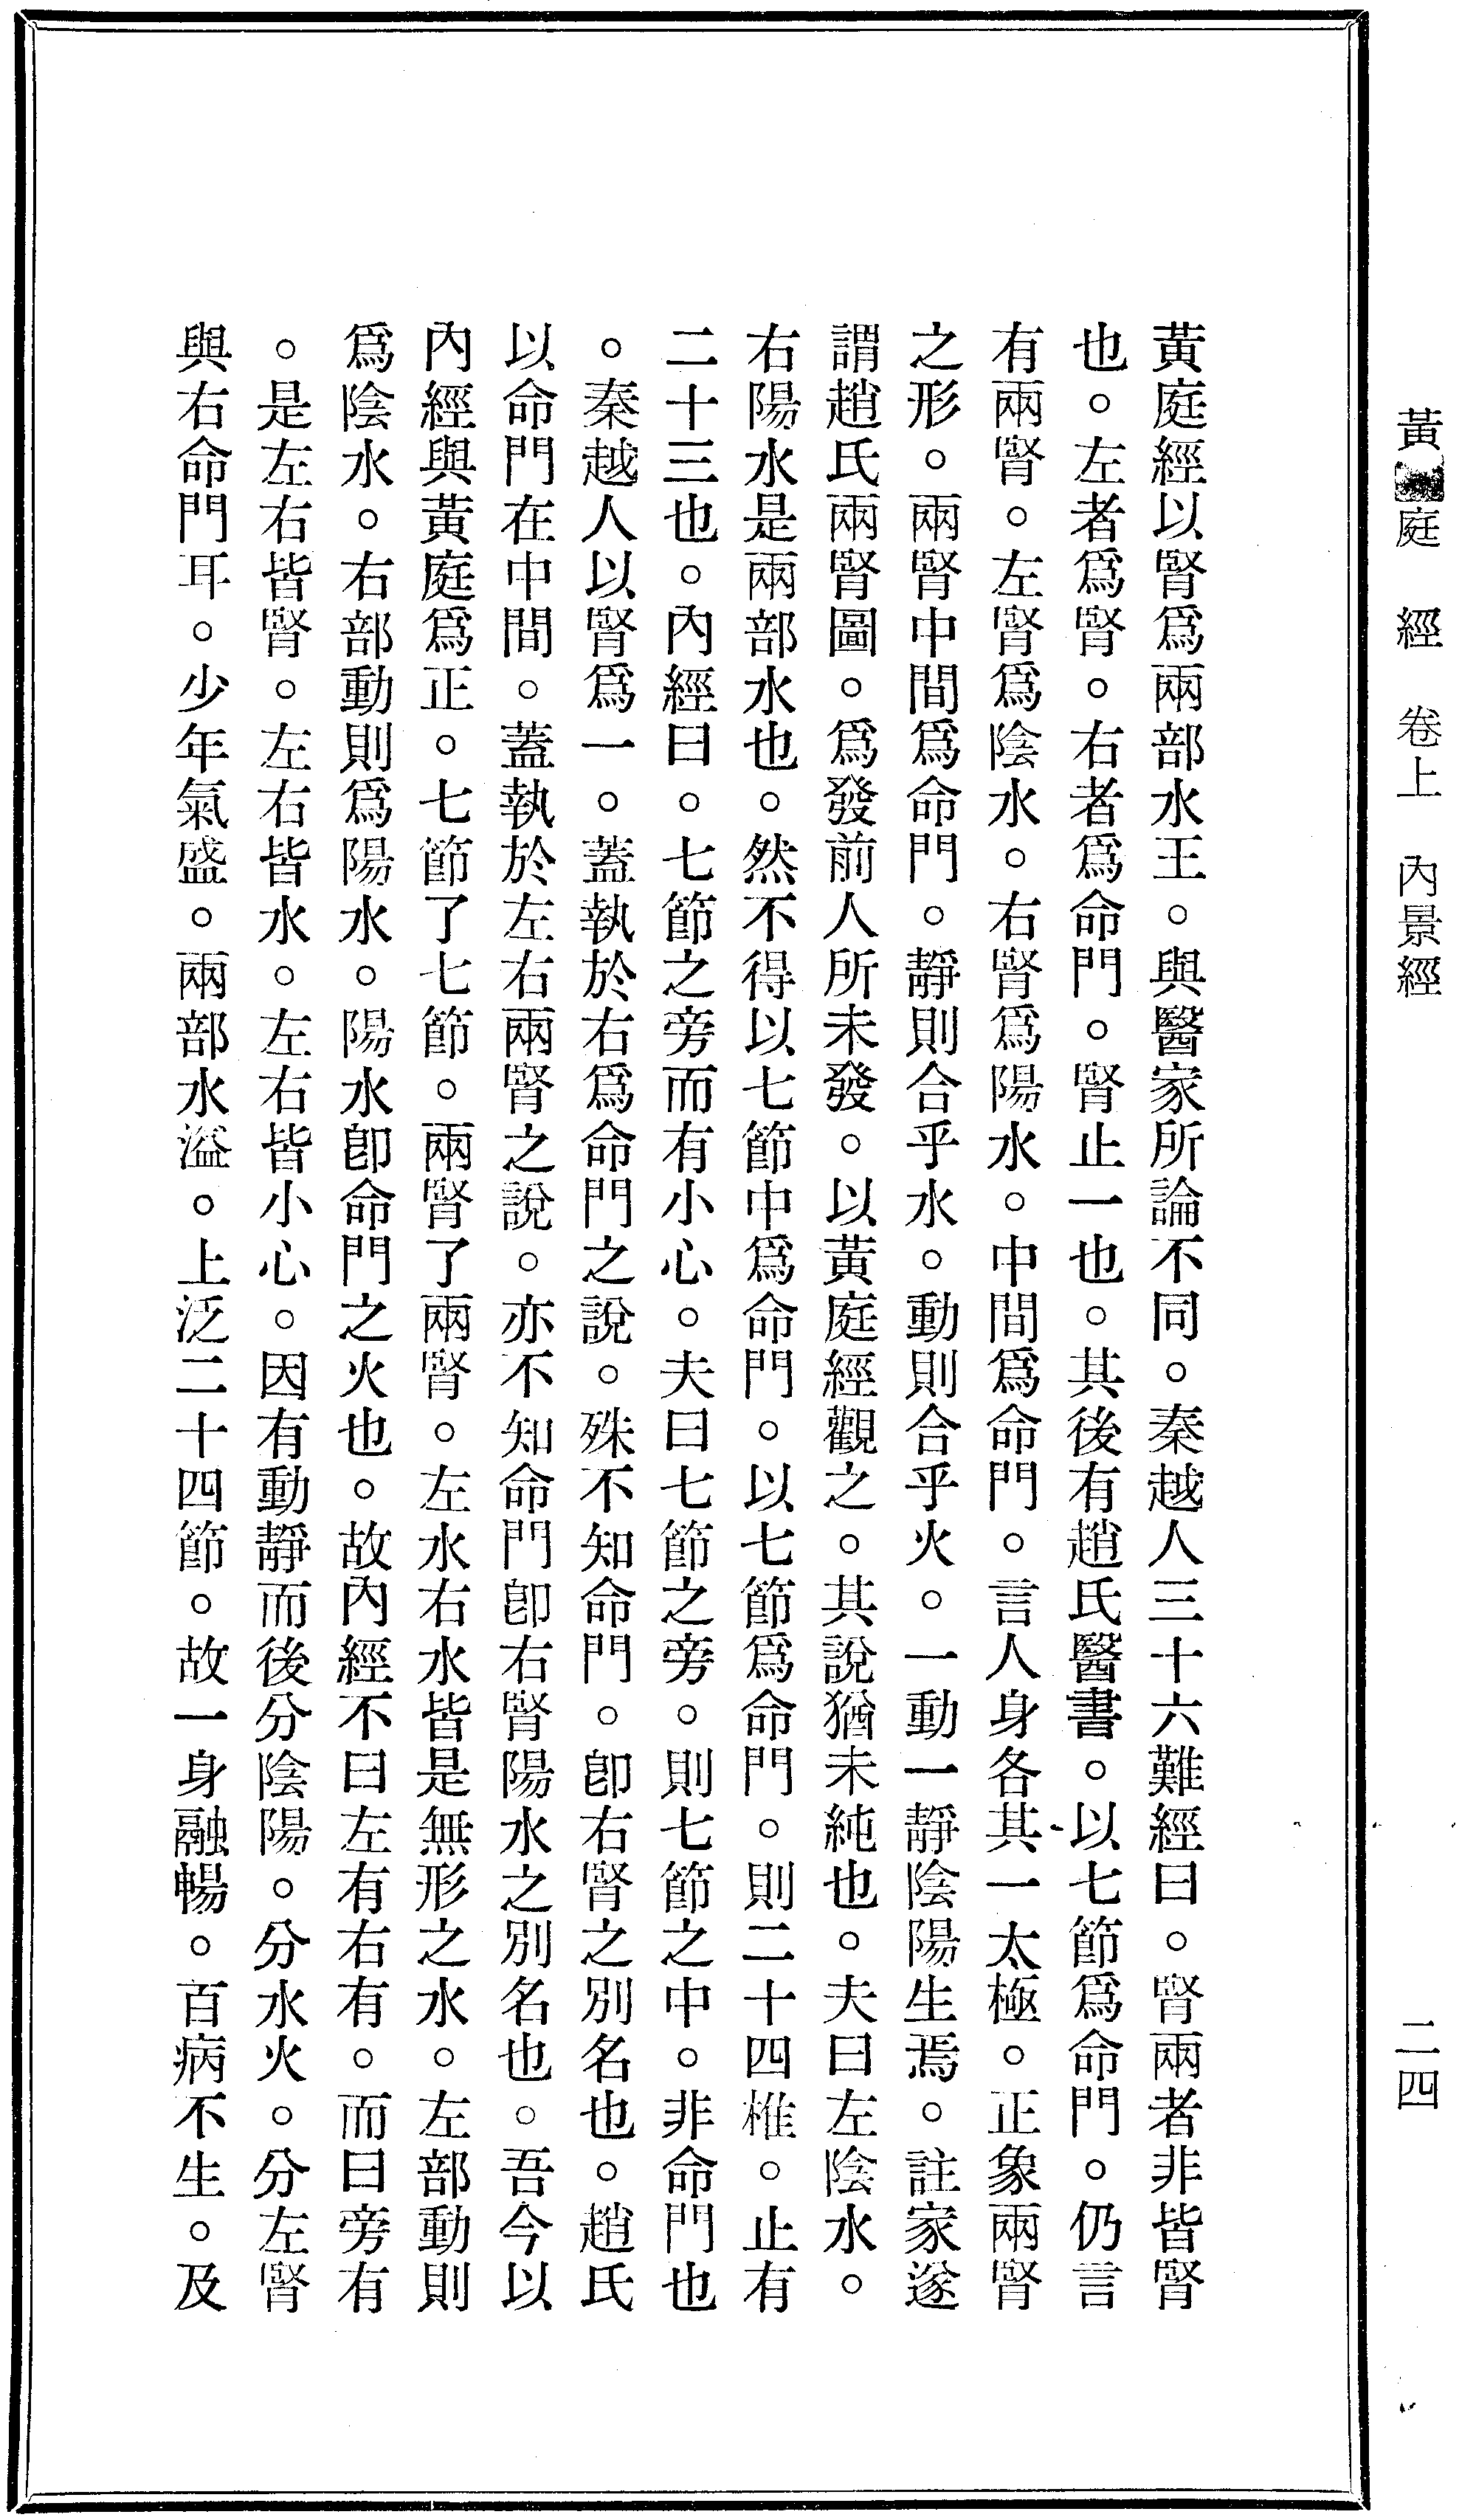 黃庭　經　卷上　內景經　二四
黃庭經以腎爲兩部水王。與醫家所論不同。秦越人三十六難經曰。腎兩者非皆腎
也。左者爲腎。右者爲命門。腎止一也。其後有趙氏醫書。以七節爲命門。仍言
有兩腎。左腎爲陰水。右腎爲陽水。中間爲命門。言人身各其一太極。正象兩腎
之形。兩腎中間爲命門。靜則合乎水。動則合乎火。一動一靜陰陽生焉。註家遂
謂趙氏兩腎圖。爲發前人所未發。以黃庭經觀之。其說猶未純也。夫曰左陰水。
右陽水是兩部水也。然不得以七節中爲命門。以七節爲命門。則二十四椎。止有
二十三也。內經曰。七節之旁而有小心。夫曰七節之旁。則七節之中。非命門也
。秦越人以腎爲一。蓋執於右爲命門之說。殊不知命門。卽右腎之別名也。趙氏
以命門在中間。蓋執於左右兩腎之說。亦不知命門卽右腎陽水之別名也。吾今以
內經與黃庭爲正。七節了七節。兩腎了兩腎。左水右水皆是無形之水。左部動則
爲陰水。右部動則爲陽水。陽水卽命門之火也。故內經不曰左有右有。而曰旁有
。是左右皆腎。左右皆水。左右皆小心。因有動靜而後分陰陽。分水火。分左腎
與右命門耳。少年氣盛。兩部水溢。上泛二十四節。故一身融暢。百病不生。及